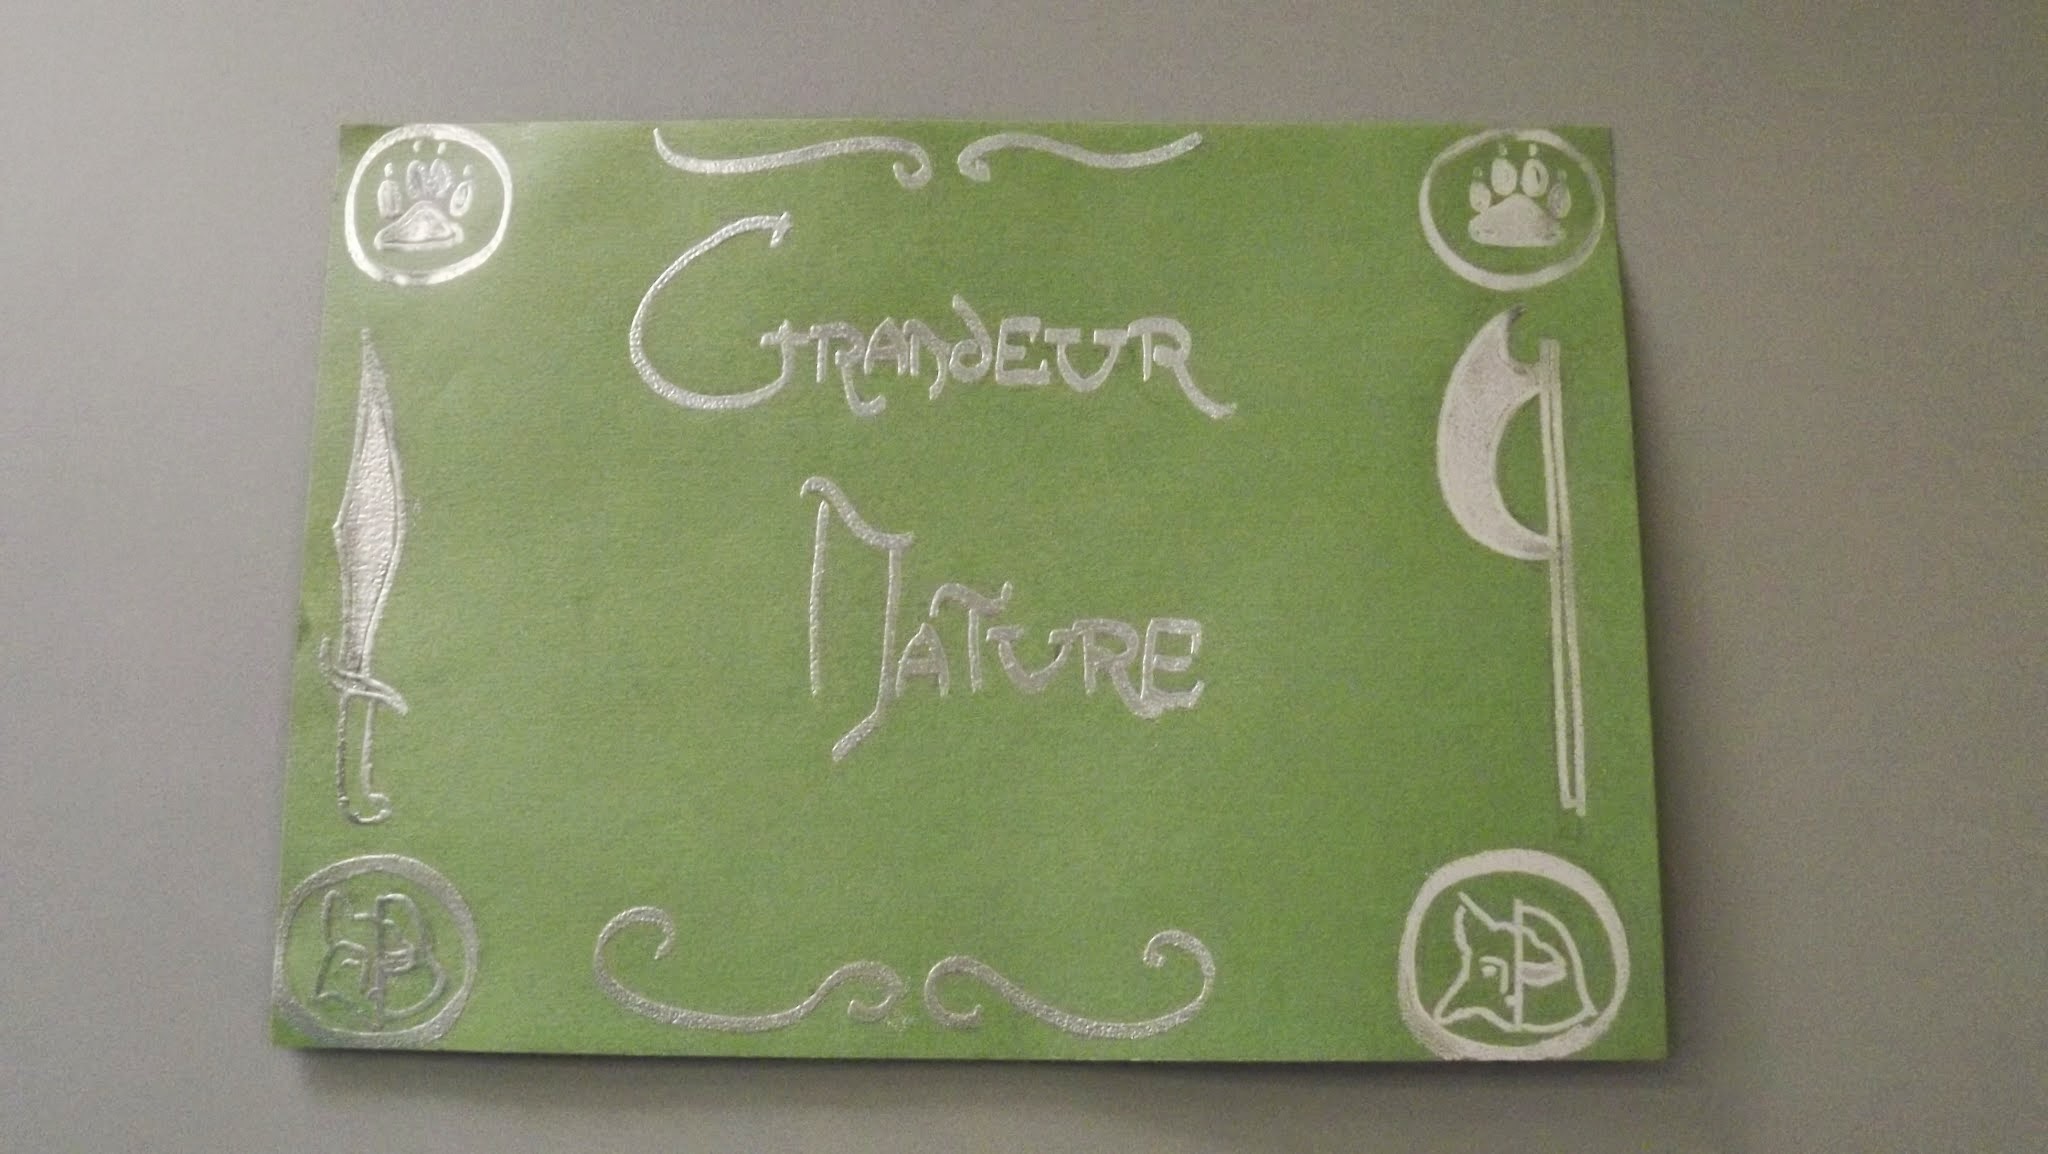 Grandeur
Nature